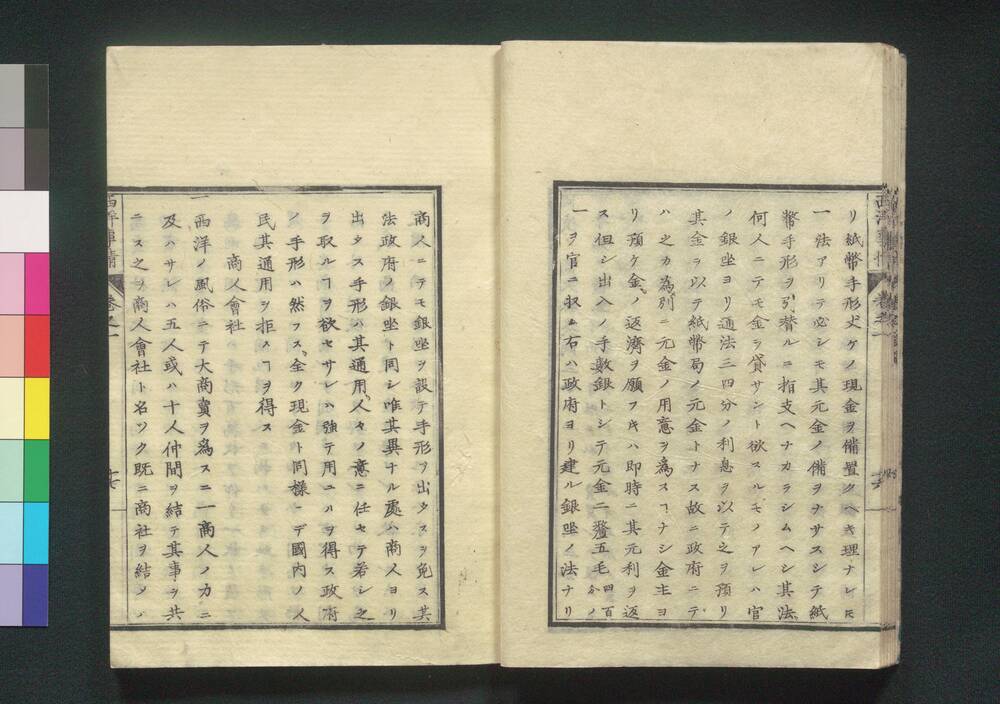 リ紙幣手形丈ケノ現金ヲ備置クヘキ理ナレ𪜈
一法アリテ必シモ其元金ノ備ヲナサスシテ紙
幣手形ヲ引替ルニ指支ヘナカラシムヘシ其法
何人ニテモ金ヲ貸サント欲スルモノアレハ官
ノ銀坐ヨリ通法三四分ノ利息ヲ以テ之ヲ預リ
其金ヲ以テ紙幣局ノ元金トナス故ニ政府ニテ
ハ之カ為別ニ元金ノ用意ヲ為スヿナシ金主ヨ
リ預ケ金ノ返濟ヲ願フ𪜈ハ即時ニ其元利ヲ返
ス但シ出入ノ手數銀トシテ元金二釐五毛四百分ノ
一ヲ官ニ収ム右ハ政府ヨリ建ル銀坐ノ法ナリ
商人ニテモ銀坐ヲ設テ手形ヲ出タスヲ免ス其
法政府ノ銀坐ト同シ唯其異ナル處ハ商人ヨリ
出タス手形ハ其通用人々ノ意ニ任セテ若シ之
ヲ取ルヿヲ欲セサレハ強テ用ユルヲ得ス政府
ノ手形ハ然ラス全ク現金ト同樣ニテ國内ノ人
民其通用ヲ拒ムヿヲ得ス
商人會社
一西洋ノ風俗ニテ大商賣ヲ爲スニ一商人ノ力ニ
及ハサレハ五人或ハ十人仲間ヲ結テ其事ヲ共
ニス之ヲ商人會社ト名ツク既ニ商社ヲ結ヘハ
西洋事情
卷之一